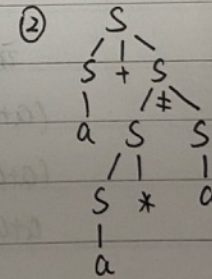 ② S
S + S
a S S
S * a
a